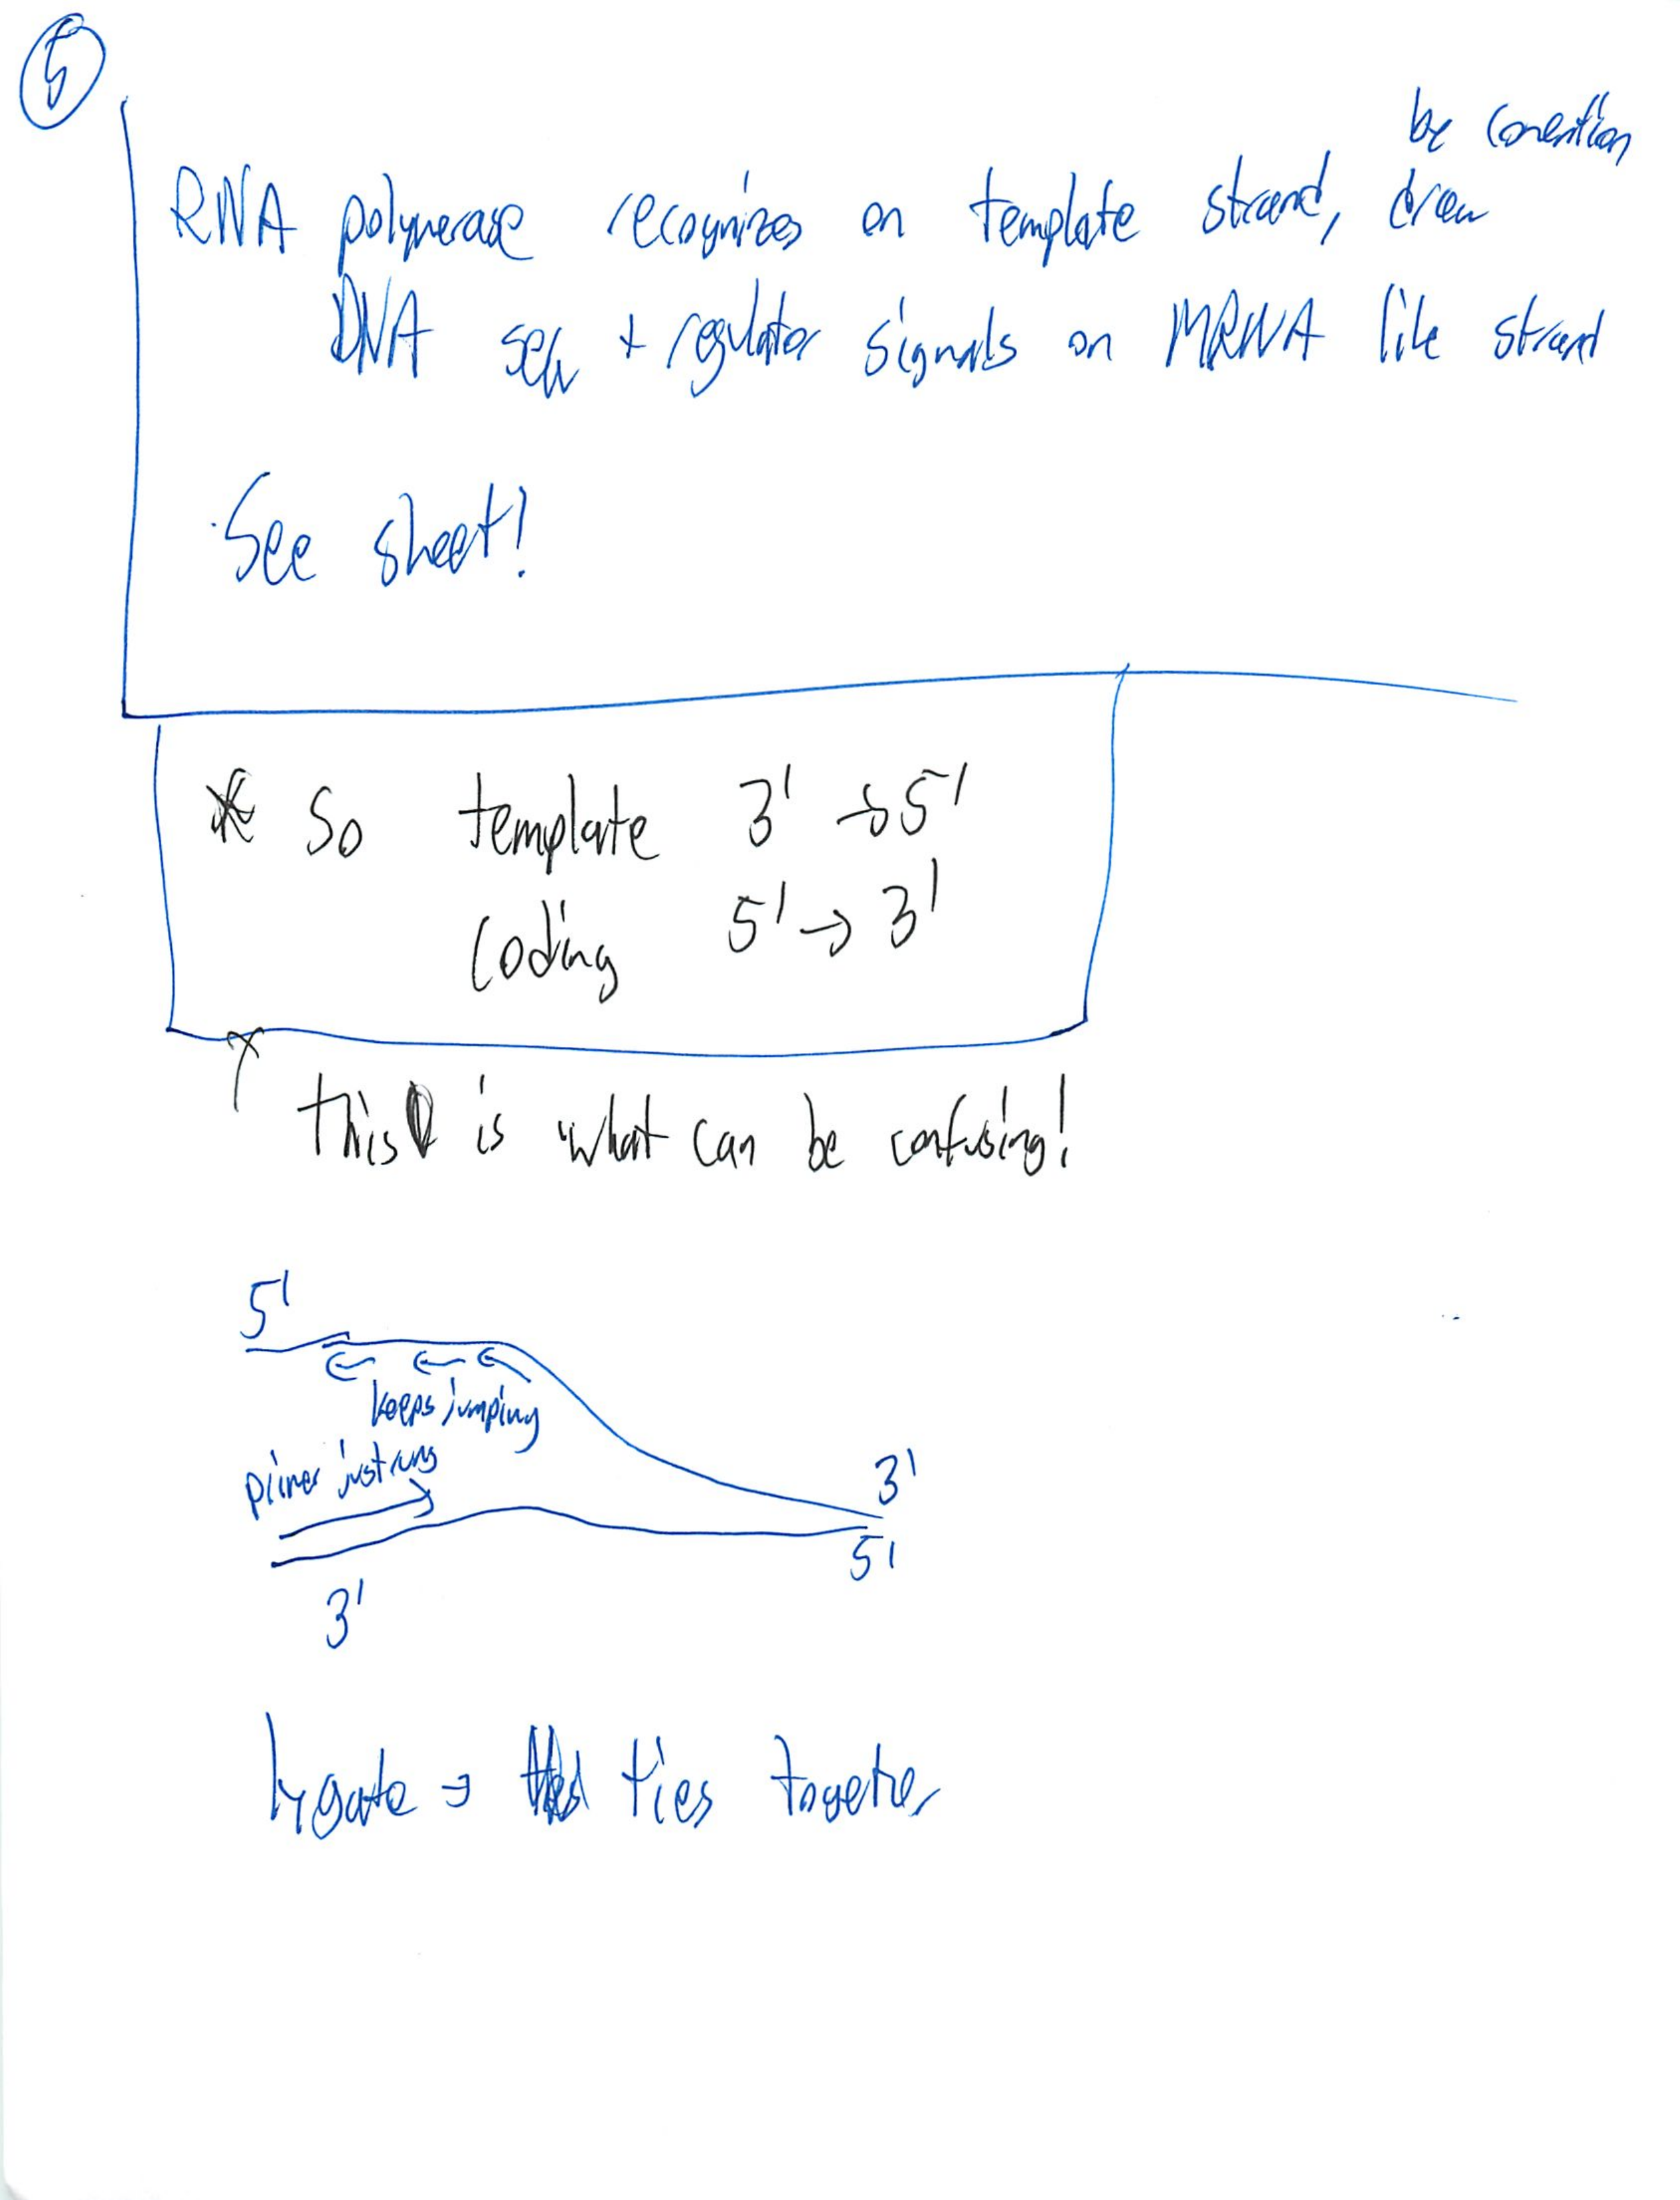 5
by convention
RNA polymerase recognizes on template strand, draw
DNA seq + regulator signals on mRNA like strand
See sheet!
* So template 3' → 5'
coding 5' → 3'
↑ this is what can be confusing!
5'
← ← ←
keeps jumping
primer just runs
3'
5'
3'
lygate → ties together